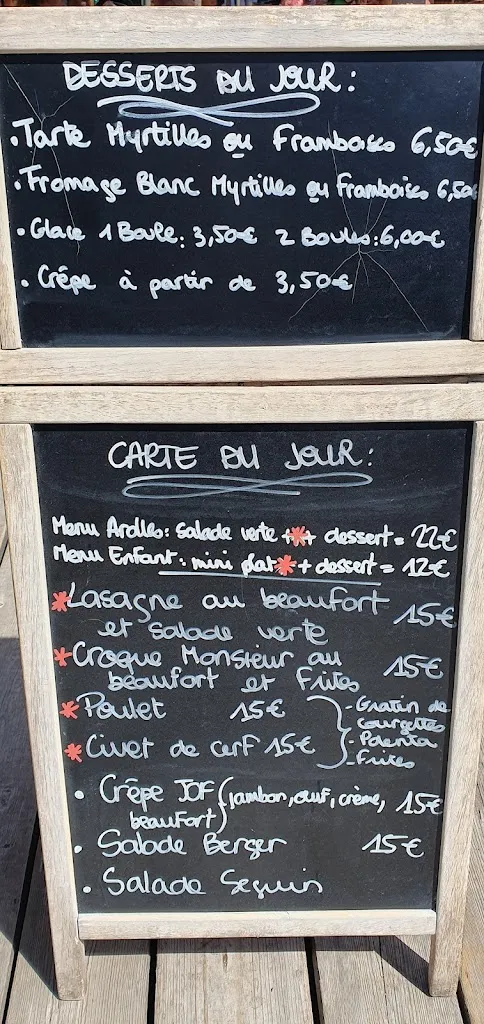 DESSERTS DU JOUR :
• Tarte Myrtilles ou Framboises 6,50€
• Fromage Blanc Myrtilles ou Framboises 6,50€
• Glace 1 Boule : 3,50€ 2 Boules : 6,00€
• Crêpe à partir de 3,50€
CARTE DU JOUR :
Menu Arolles : salade verte +*+ dessert = 22€
Menu Enfant : mini plat* + dessert = 12€
*Lasagne au beaufort 15€
et salade verte
*Croque Monsieur au 15€
beaufort et Frites
*Poulet 15€
*Civet de cerf 15€
- Gratin de
courgettes
- Polenta
- Frites
• Crêpe JOF (jambon, œuf, crème, 15€
beaufort)
• Salade Berger 15€
• Salade Seguin